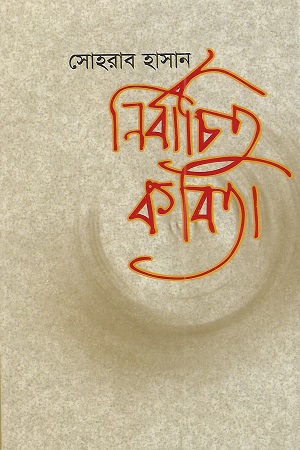 সোহরাব হাসান
নির্বাচিত
কবিতা